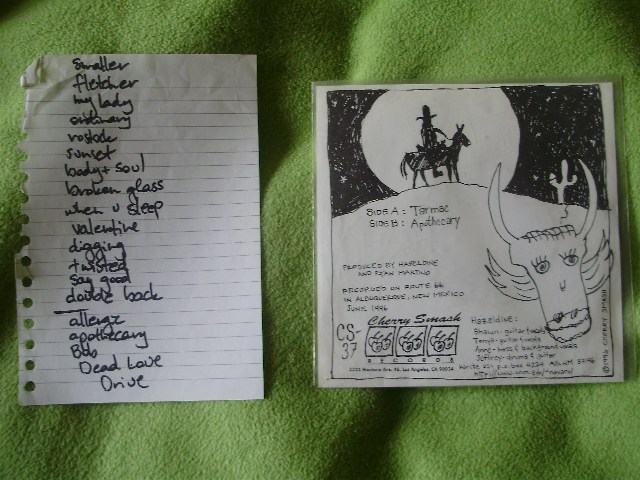 smaller
fletcher
my lady
ordinary
rostock
sunset
body + soul
broken glass
when u sleep
valentine
digging
twisted
say good
double back
allergic
apothecary
Bub
Dead Love
Drive
SIDE A: Tarmac
SIDE B: Apothecary
PRODUCED BY HAZELDINE
AND RYAN MARTINO
RECORDED ON ROUTE 66
IN ALBUQUERQUE, NEW MEXICO
JUNE 1996
Cherry Smash
RECORDS
CS-
37
Los Angeles, CA
Hazeldine:
Shawn: guitar & vocals
Tonya: guitar & vocals
Anne: bass & background vocals
Jeffrey: drums & guitar
Write P.O. Box 4224 ALB NM 87196
© 1996 CHERRY SMASH